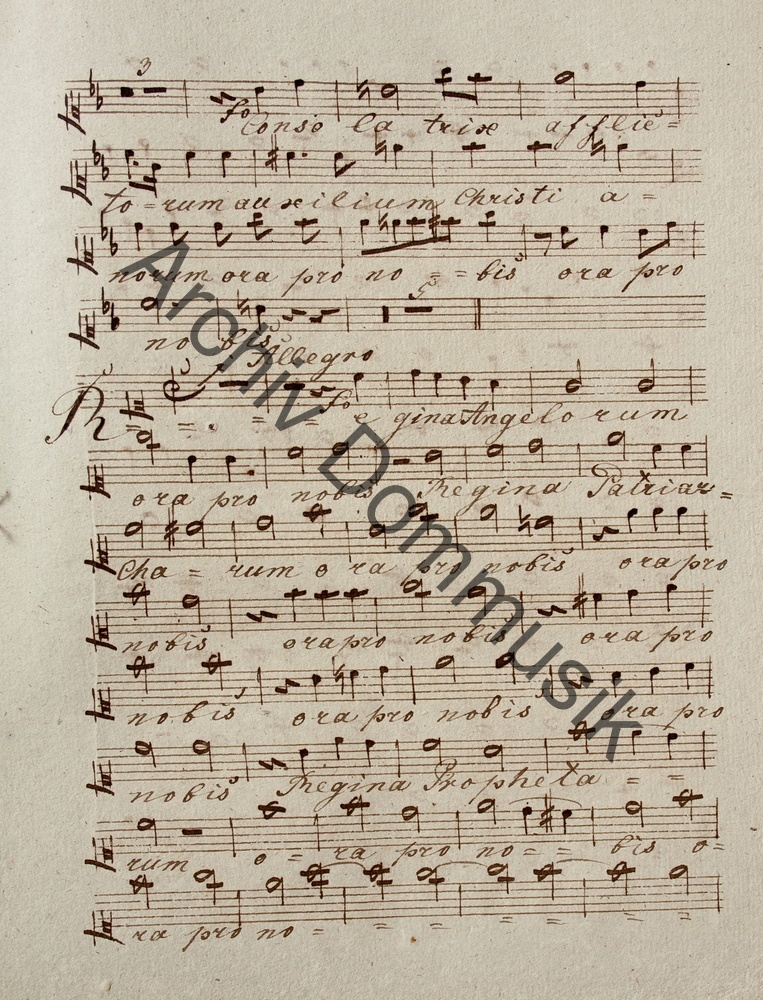 3
So
Conso la trix afflic=
to=rum auxilium Christi a=
norum ora pro no==bis ora pro
5
nobis
Allegro
So
Re===gina Angelorum
ora pro nobis Regina Patriar=
cha=rum ora pro nobis ora pro
nobis ora pro nobis ora pro
nobis ora pro nobis ora pro
nobis Regina Propheta==
rum o=ra pro no==bis o=
ra pro no======
Archiv Dommusik